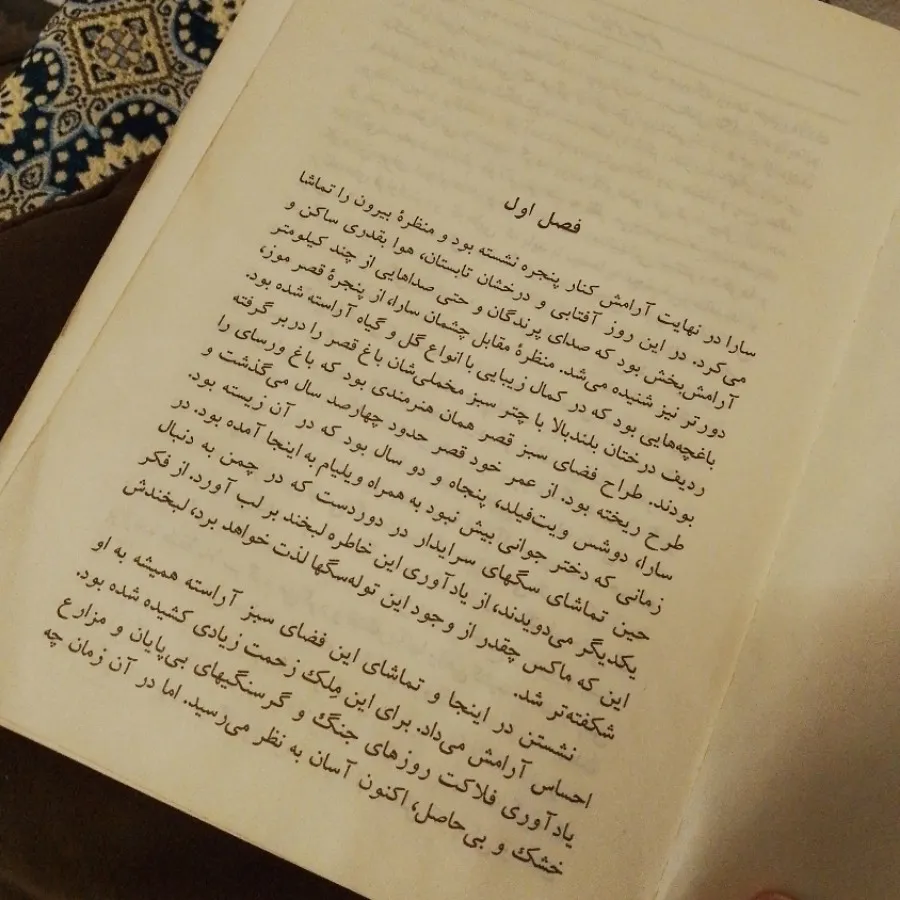 فصل اول
سارا در نهایت آرامش کنار پنجره نشسته بود و منظرهٔ بیرون را تماشا
می‌کرد. در این روز آفتابی و درخشان تابستان، هوا بقدری ساکن و
آرامش‌بخش بود که صدای پرندگان و حتی صداهایی از چند کیلومتر
دورتر نیز شنیده می‌شد. منظرهٔ مقابل چشمان سارا، از پنجرهٔ قصر موز،
باغچه‌هایی بود که در کمال زیبایی با انواع گل و گیاه آراسته شده بود.
ردیف درختان بلندبالا با چتر سبز مخملی‌شان باغ قصر را دربر گرفته
بودند. طراح فضای سبز قصر همان هنرمندی بود که باغ ورسای را
طرح ریخته بود. از عمر خود قصر حدود چهارصد سال می‌گذشت و
سارا، دوشس ویت‌فیلد، پنجاه و دو سال بود که در آن زیسته بود.
زمانی که دختر جوانی بیش نبود به همراه ویلیام به اینجا آمده بود. در
حین تماشای سگهای سرایدار در دوردست که در چمن به دنبال
یکدیگر می‌دویدند، از یادآوری این خاطره لبخند بر لب آورد. از فکر
این که ماکس چقدر از وجود این توله‌سگها لذت خواهد برد، لبخندش
شکفته‌تر شد.
نشستن در اینجا و تماشای این فضای سبز آراسته همیشه به او
احساس آرامش می‌داد. برای این مِلک زحمت زیادی کشیده شده بود.
یادآوری فلاکت روزهای جنگ و گرسنگیهای بی‌پایان و مزارع
خشک و بی‌حاصل، اکنون آسان به نظر می‌رسید. اما در آن زمان چه